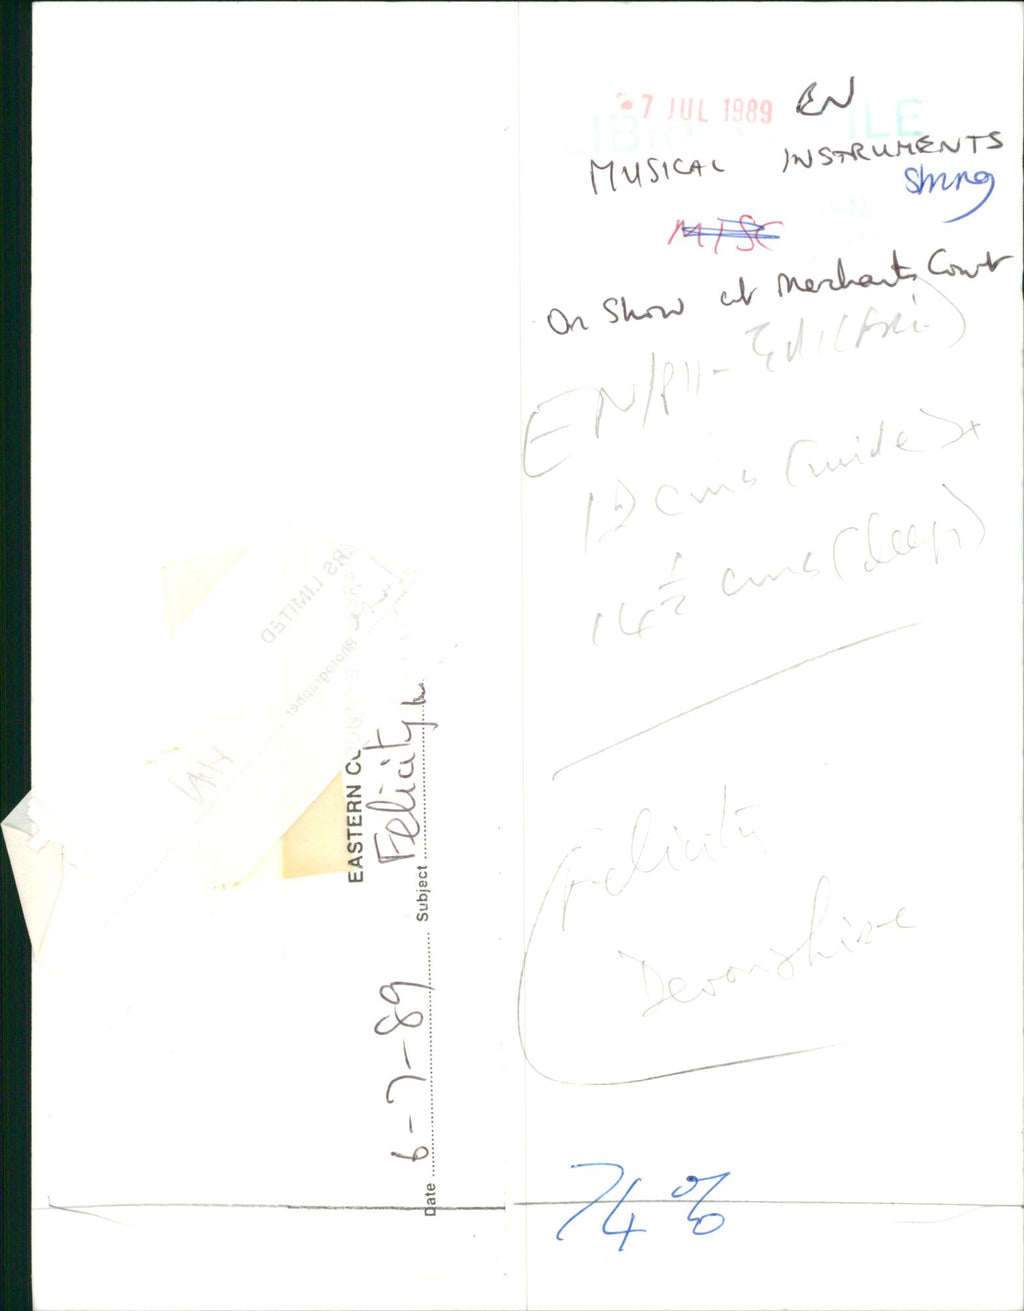 7 JUL 1989
EN
MUSICAL INSTRUMENTS
String
MISC
On Show at Merchants Court
EN/P11-
cms (wide) x
14 1/2 cms (deep)
Felicity
Devonshire
74%
RS LIMITED
Photographer
EASTERN CO
Date 6-7-89 Subject Felicity